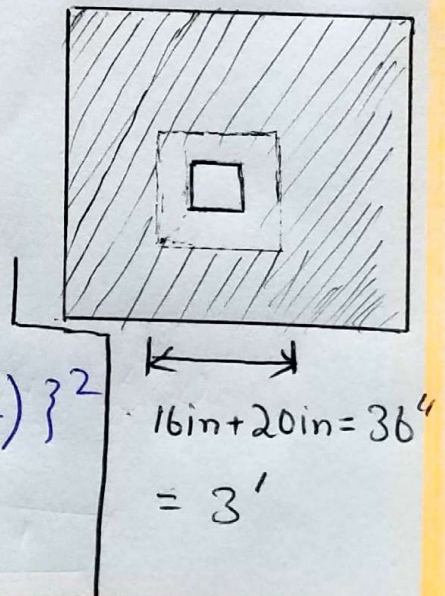 ) }²
16in+20in=36"
= 3'